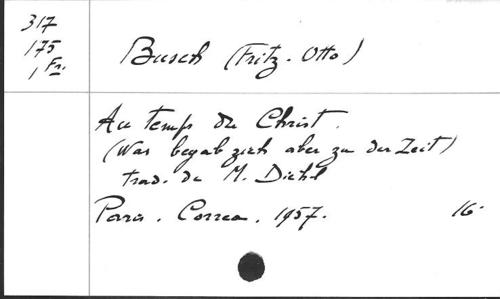 317
175
1 Fr.
Busch (Fritz-Otto)
Au temps du Christ.
(Was begab sich aber zu der Zeit)
trad. de M. Diehl
Paris. Correa. 1957. 16-